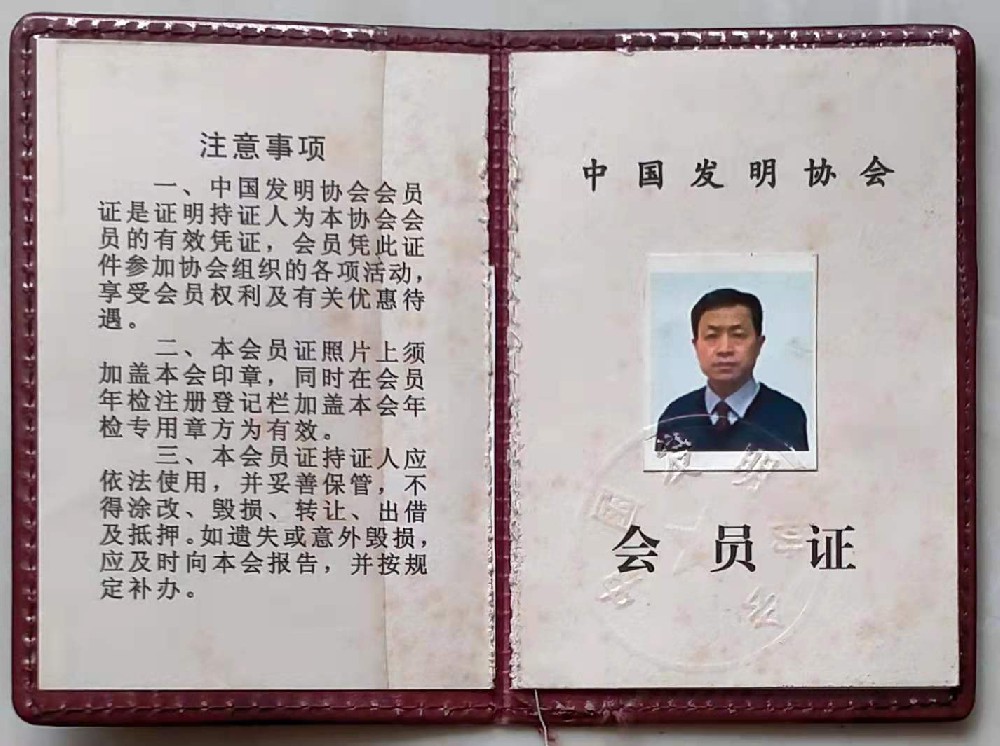 注意事项
一、中国发明协会会员
证是证明持证人为本协会会
员的有效凭证，会员凭此证
件参加协会组织的各项活动，
享受会员权利及有关优惠待
遇。
二、本会员证照片上须
加盖本会印章，同时在会员
年检注册登记栏加盖本会年
检专用章方为有效。
三、本会员证持证人应
依法使用，并妥善保管，不
得涂改、毁损、转让、出借
及抵押。如遗失或意外毁损，
应及时向本会报告，并按规
定补办。
中国发明协会
会员证